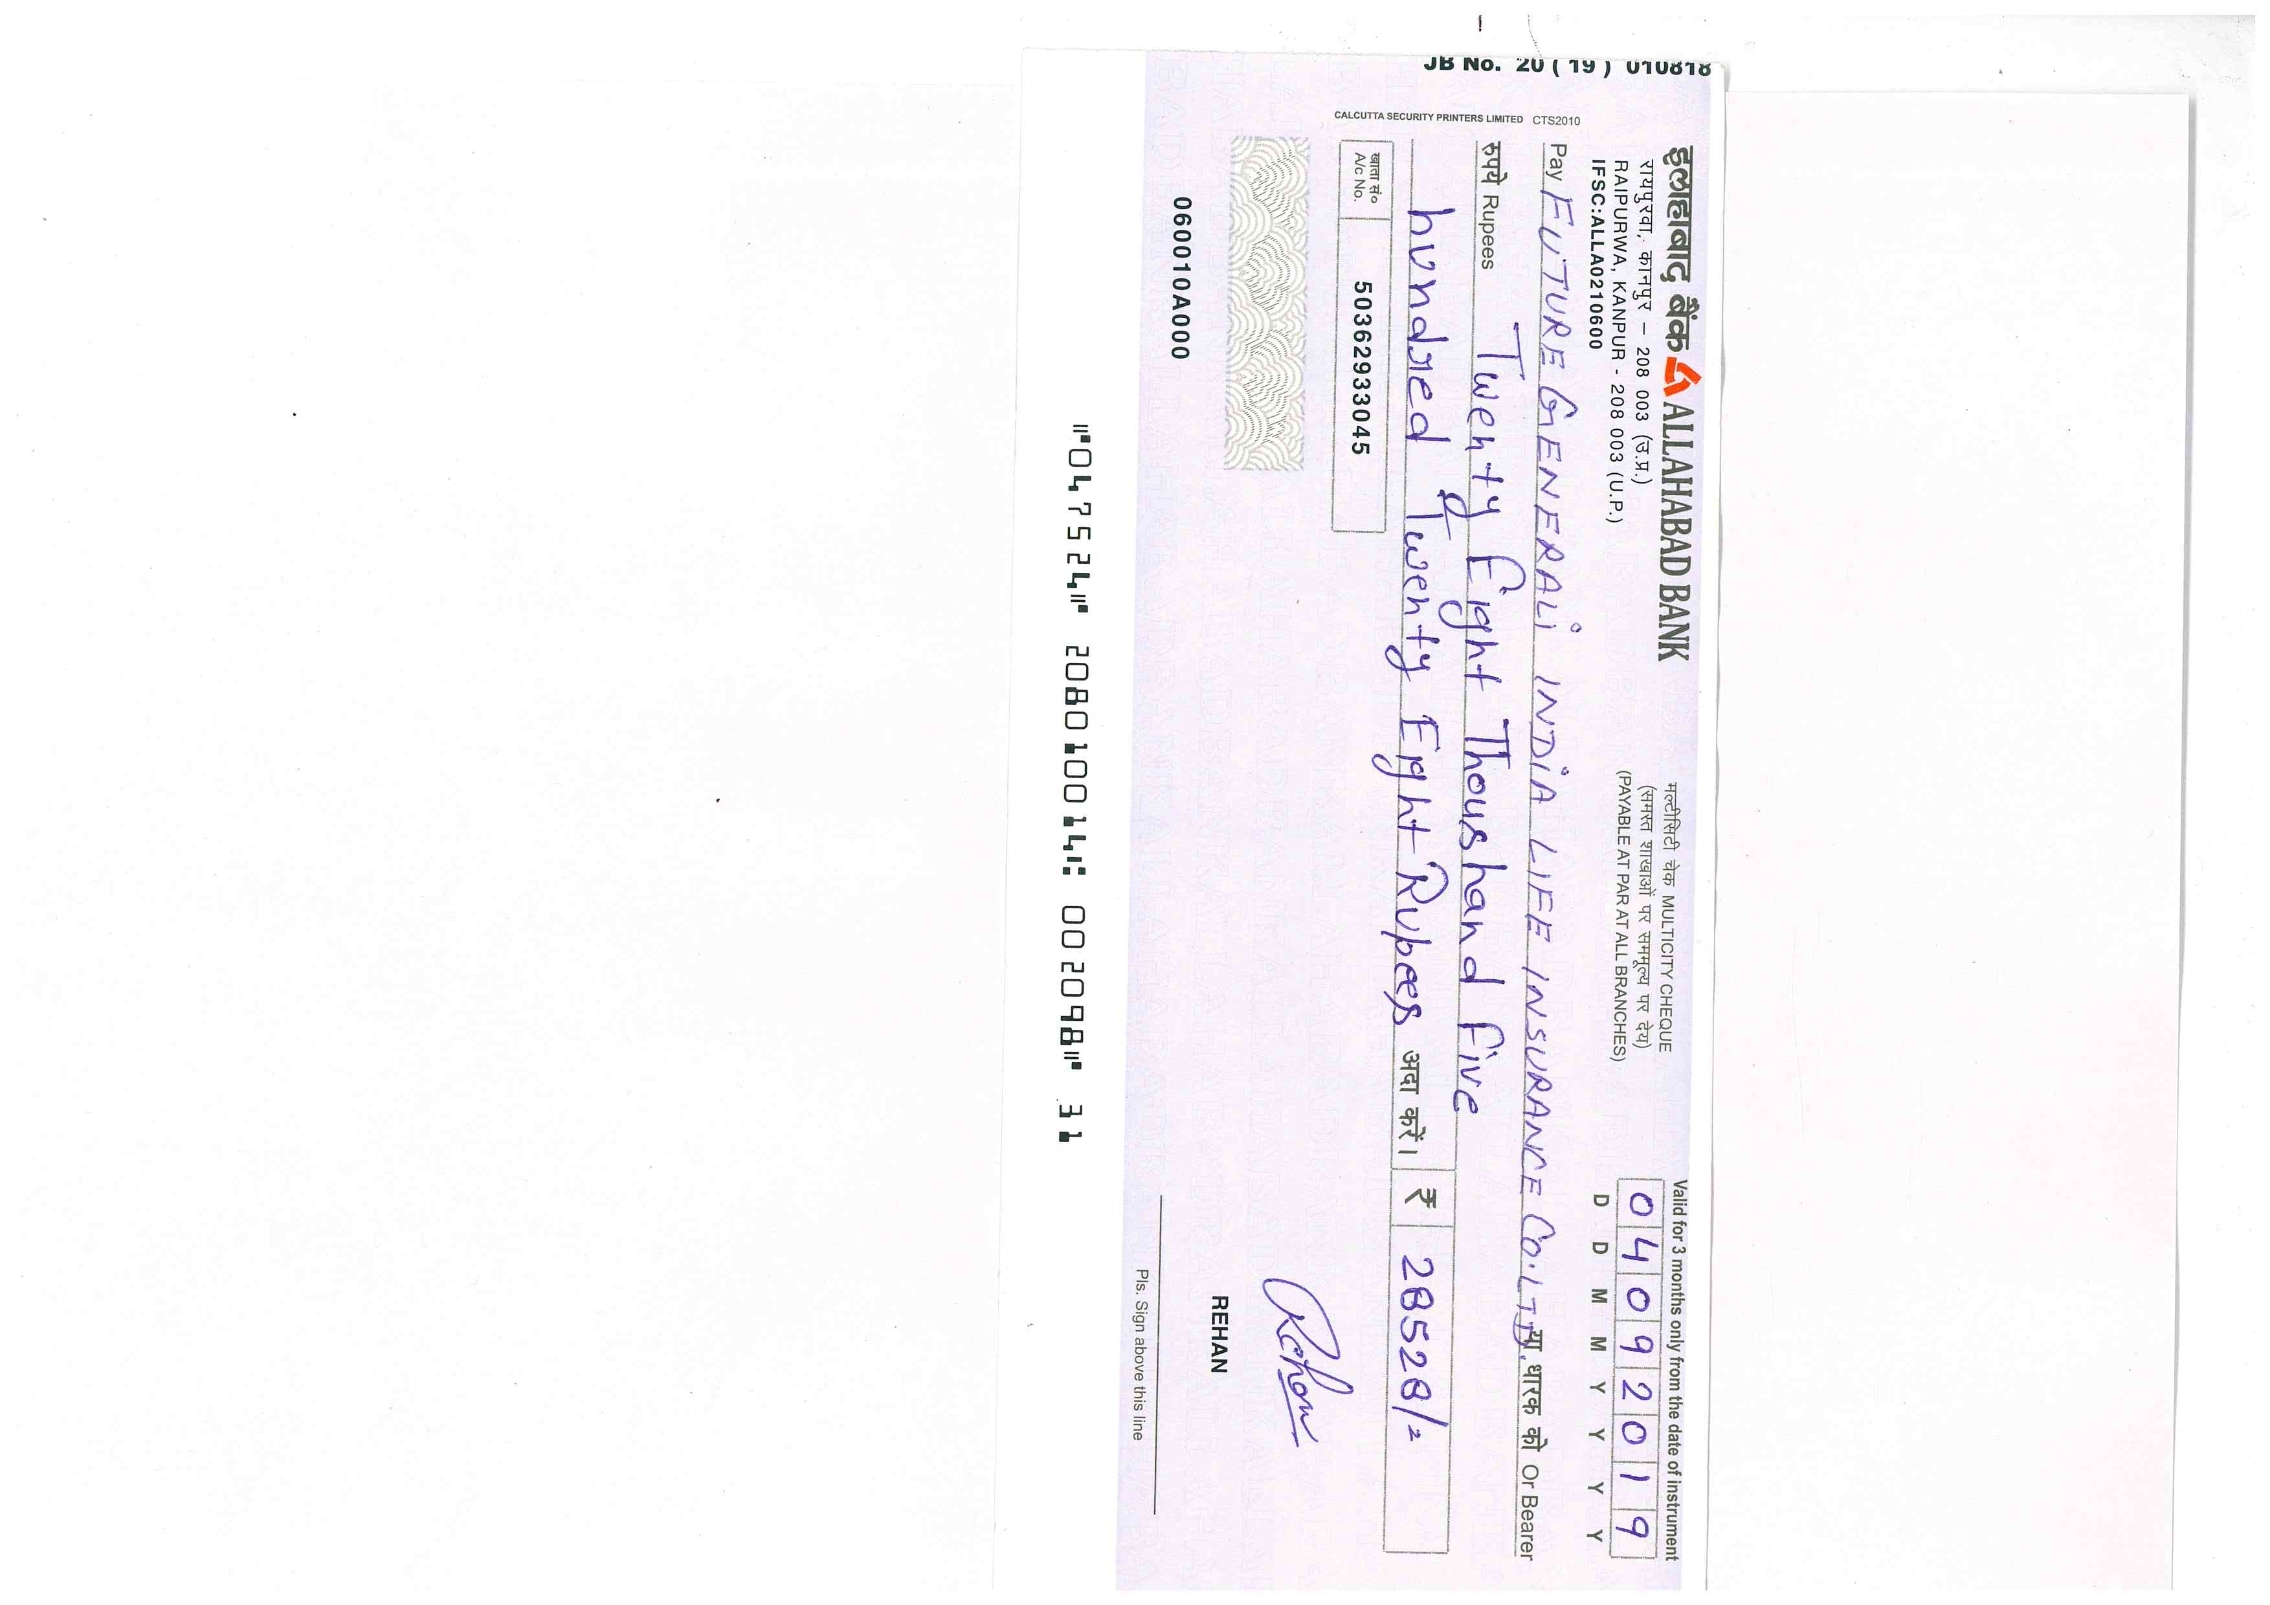 JB No. 20 ( 19 ) 010818
CALCUTTA SECURITY PRINTERS LIMITED CTS2010
इलाहाबाद बैंक ALLAHABAD BANK
रायपुरवा, कानपुर – 208 003 (उ.प्र.)
RAIPURWA, KANPUR - 208 003 (U.P.)
IFSC:ALLA0210600
मल्टीसिटी चेक MULTICITY CHEQUE
(समस्त शाखाओं पर सममूल्य पर देय)
(PAYABLE AT PAR AT ALL BRANCHES)
Valid for 3 months only from the date of instrument
0 4 0 9 2 0 1 9
D D M M Y Y Y Y
Pay FUTURE GENERALI INDIA LIFE INSURANCE CO. LTD. या धारक को Or Bearer
रुपये Rupees Twenty Eight Thoushand Five
hundred & Twenty Eight Rupees अदा करें। ₹ 28528/=
खाता सं०
A/c No. 50362933045
Rehan
REHAN
060010A000
Pls. Sign above this line
⑈047524⑈ 208010014⑆ 002098⑈ 31